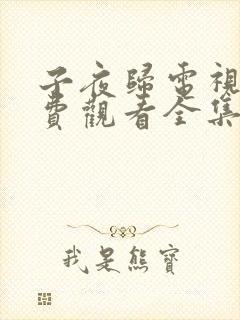 子夜歸電視
費觀看全集
我是熊寶